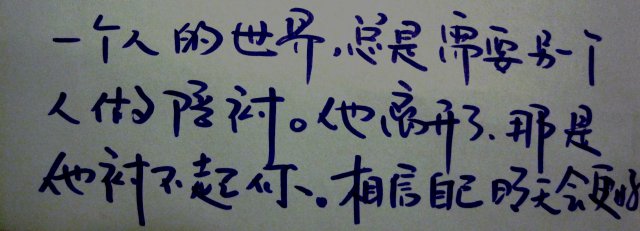 一个人的世界,总是需要另一个
人做陪衬。他离开了,那是
他衬不起你。相信自己明天会更好